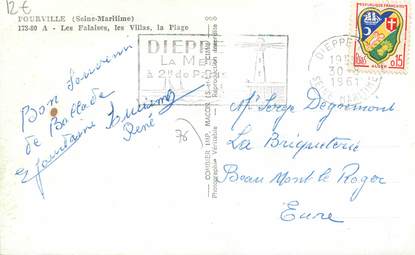 12€
POURVILLE (Seine-Maritime)
173-80 A - Les Falaises, les Villas, la Plage
DIEPPE
LA MER
à 2h de Paris
RÉPUBLIQUE FRANÇAISE
0,15
ALGER
DIEPPE
30
1961
SEINE MARITIME
Bon Souvenir
de Ballade
René
76
COMBIER IMP. MACON
Photographie Véritable
Reproduction interdite
Mr Serge Degremont
La Briqueterie
Beau Mont le Roger
Eure